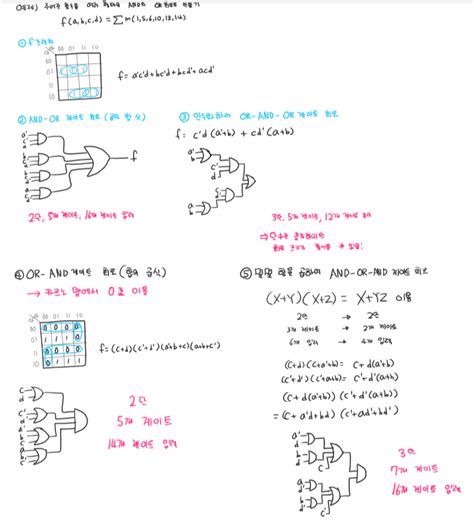 예제) 주어진 함수를 여러 형태의 AND와 OR 회로로 만들기
f(a,b,c,d) = ∑m(1,5,6,10,13,14)
① f
00 01 11 10
00
01
11
10
f= a'c'd+bc'd+bcd'+acd'
② AND-OR 게이트 회로 (곱의 합 식)
f
2단, 5개 게이트, 16개 게이트 입력
③ 인수분해하여 OR-AND-OR 게이트 회로
f= c'd(a'+b) + cd'(a+b)
3단, 5개 게이트, 12개 게이트 입력
④ OR-AND 게이트 회로 (합의 곱식)
→ 카르노 맵에서 0을 이용
00 01 11 10
00 0 0 0 0
01
11
10
f= (c+d)(c'+d')(a'+b+c)(a+b+c')
2단
5개 게이트
14개 게이트 입력
⑤ 항을 곱하여 AND-OR-AND 게이트 회로
(X+Y)(X+Z) = X+YZ 이용
2단 → 2단
3개 게이트 → 2개 게이트
6개 입력 → 4개 입력
(c+d)(c+a'+b)= c+d(a'+b)
(c'+d')(c'+a+b)= c'+d'(a+b)
(c+d(a'+b)) (c'+d'(a+b))
= (c+ a'd+bd) (c'+ad'+bd')
3단
7개 게이트
16개 게이트 입력